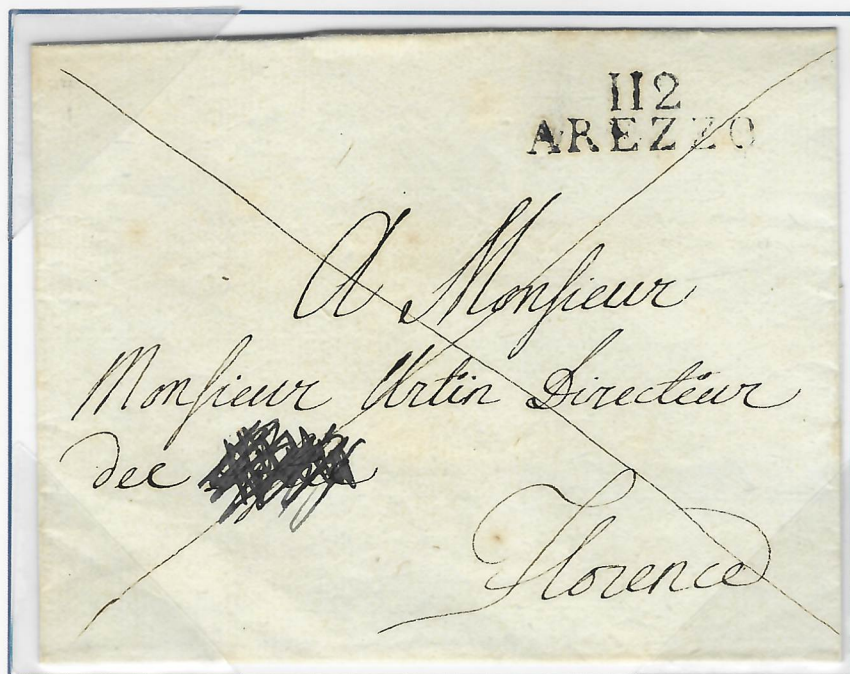 112
AREZZO
A Monsieur
Monsieur Urtin Directeur
dee
Florence